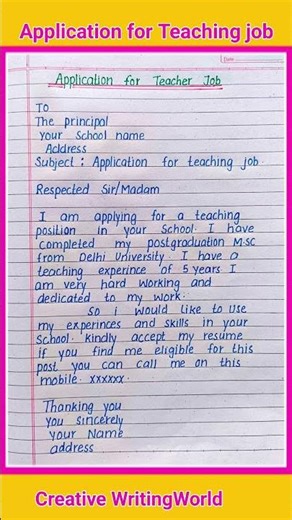 Application for Teaching job
Date
Application for Teacher Job
To
The principal
your School name
Address
Subject : Application for teaching job.
Respected Sir/Madam
I am applying for a teaching
position in your School. I have
completed my postgraduation M.sc
from Delhi University. I have a
teaching experince of 5 years I
am very hard working and
dedicated to my work.
So i would like to use
my experinces and skills in your
School. kindly accept my resume
if you find me eligible for this
post you can call me on this
mobile. xxxxxx.
Thanking you
you sincerely
your Name
address
Creative WritingWorld